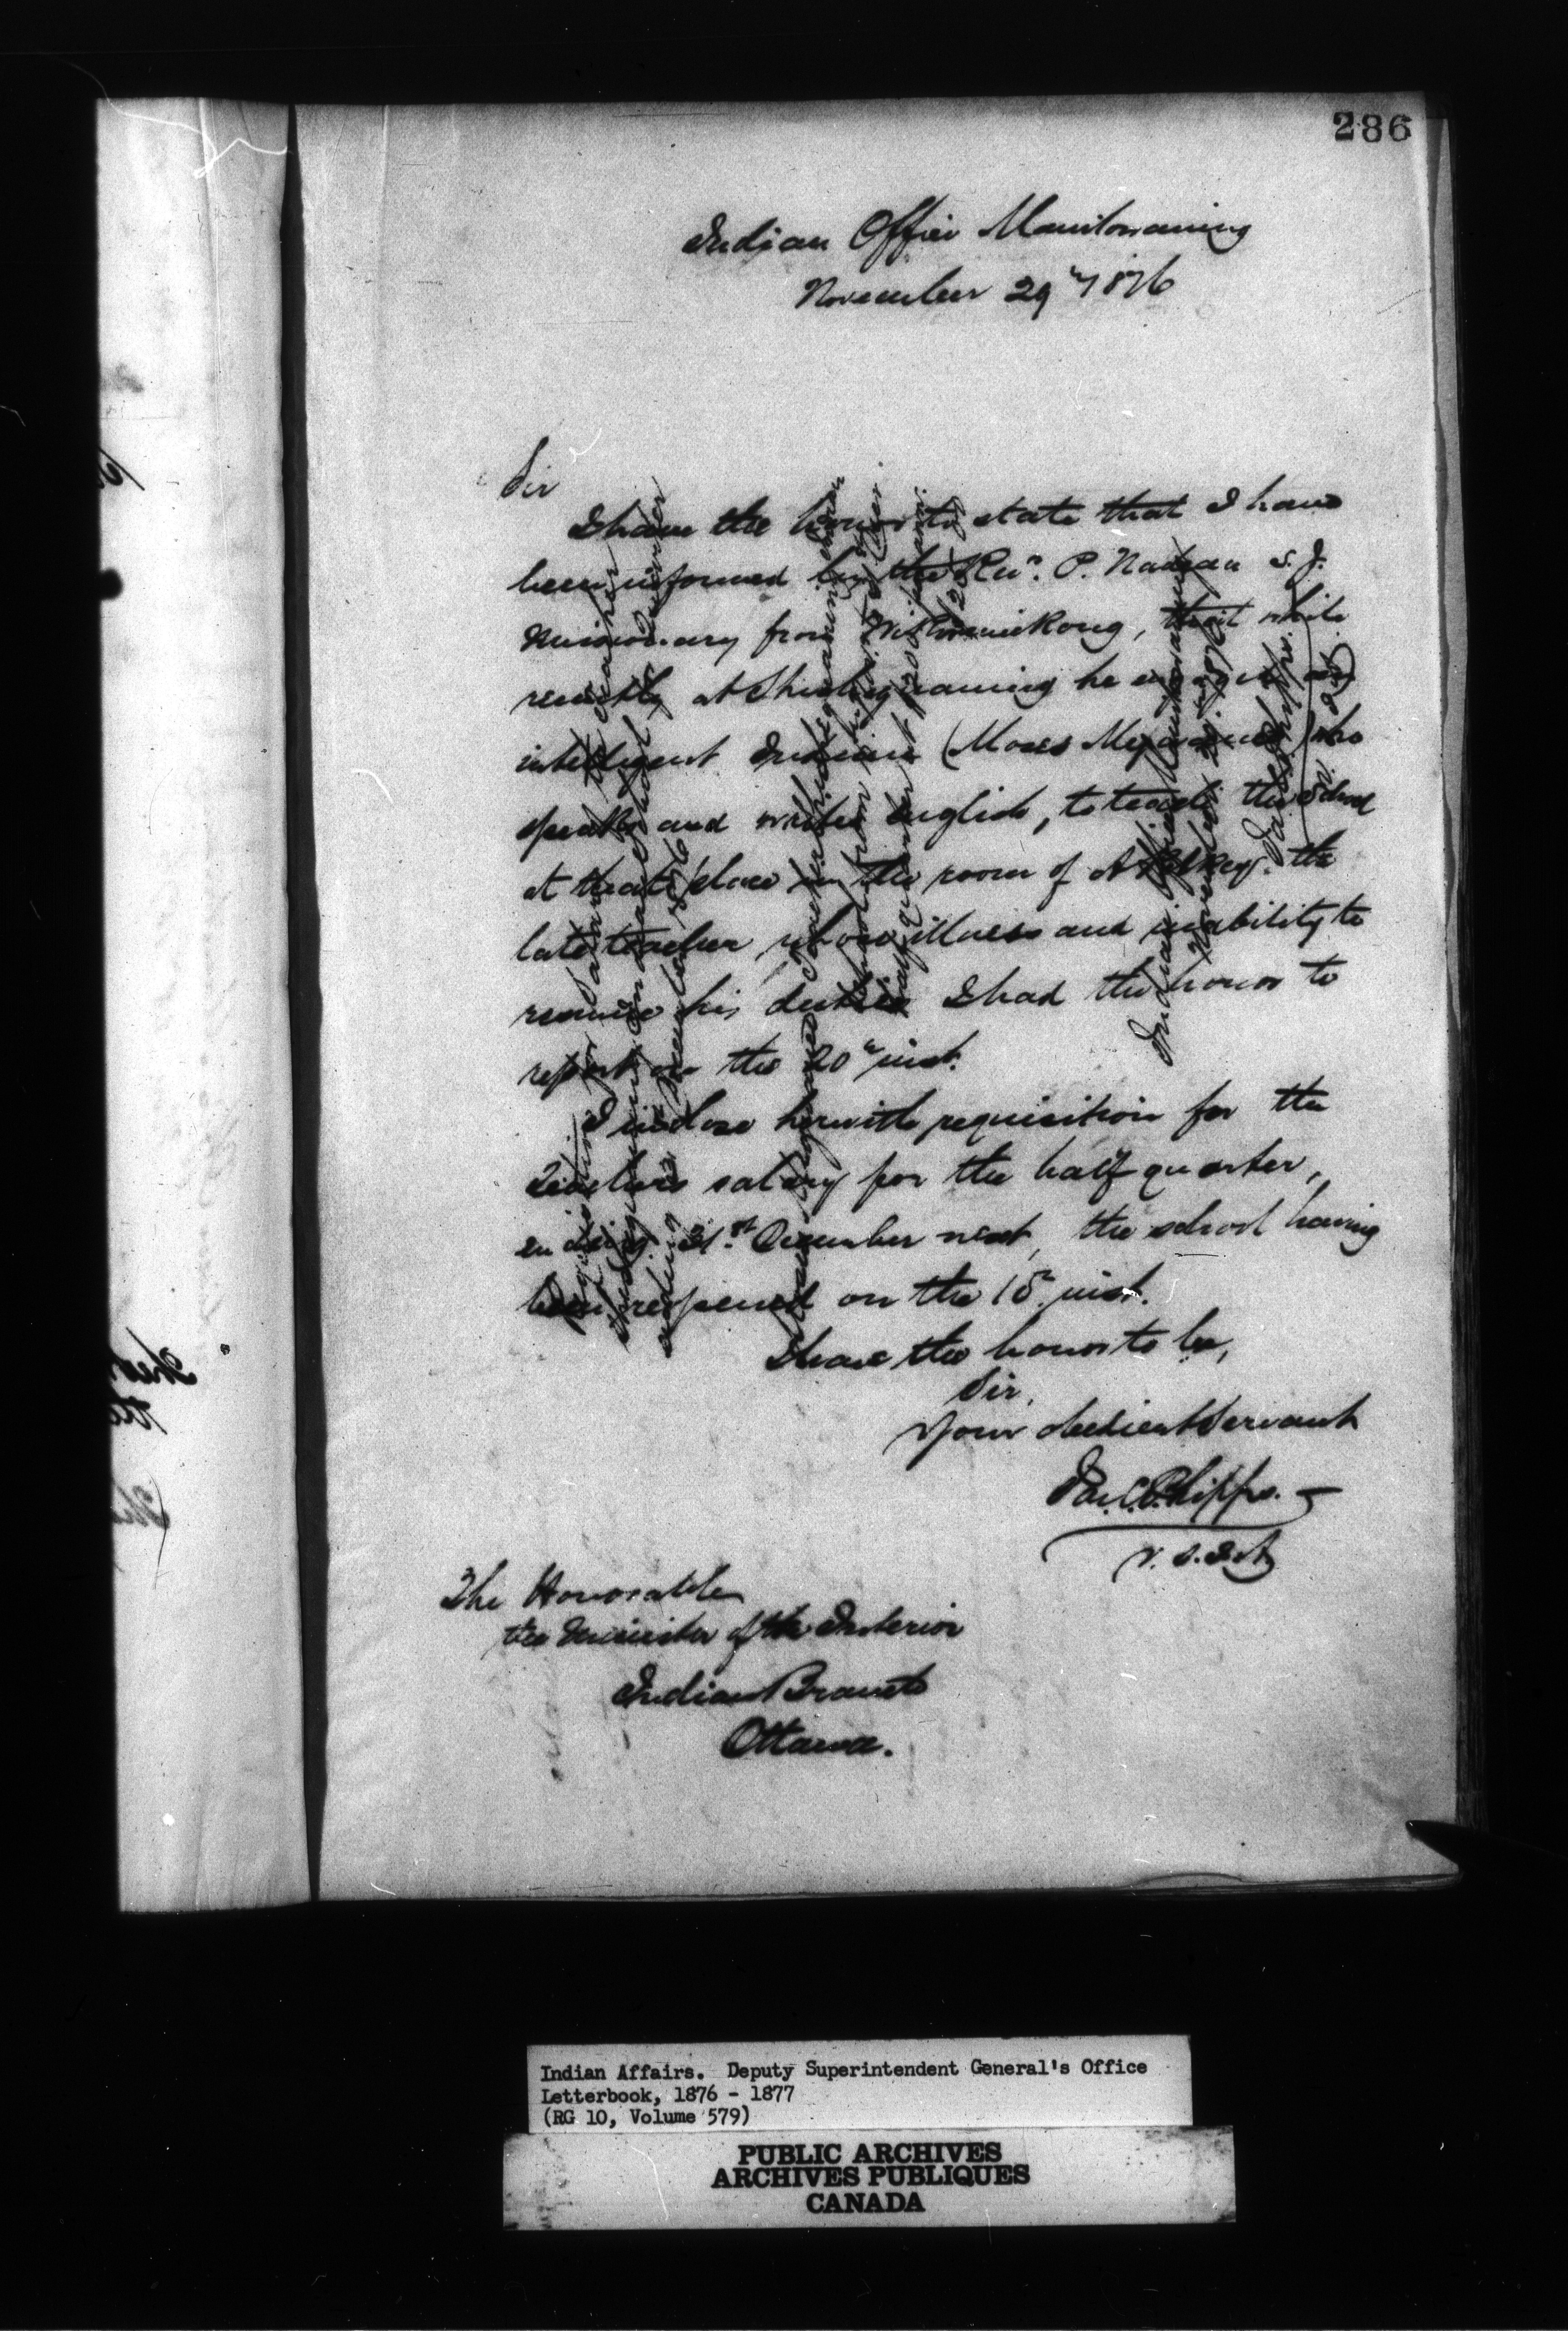 286
Indian Office Manitowaning
November 29th 1876
Sir
I have the honor to state that I have
been informed by the Revd. P. Nadeau S.J.
Missionary from Wikwemikong, that while
recently at Sheshegwaning he engaged an
intelligent Indian (Moses) who
speaks and writes English, to teach the School
at that place in the room of the
late teacher, whose illness and inability to
resume his duties I had the honor to
report on the 20th inst.
I inclose herewith requisition for the
Teachers salary for the half quarter,
ending 31st December next, the school having
been reopened on the 15th inst.
I have the honor to be,
Sir,
Your obedient Servant
Jas. C. Phipps.
V.S.I.A
The Honorable
the Minister of the Interior
Indian Branch
Ottawa.
Requisition for Salary of teacher
Sheshegwaning Indian School for quarter
ending 31st December 1876
Sheshegwaning Indian
School from
half quarter
Indian Office Manitowaning
November 29th 1876
Jas. C. Phipps.
V.S.I.A
Indian Affairs. Deputy Superintendent General's Office
Letterbook, 1876 - 1877
(RG 10, Volume 579)
PUBLIC ARCHIVES
ARCHIVES PUBLIQUES
CANADA